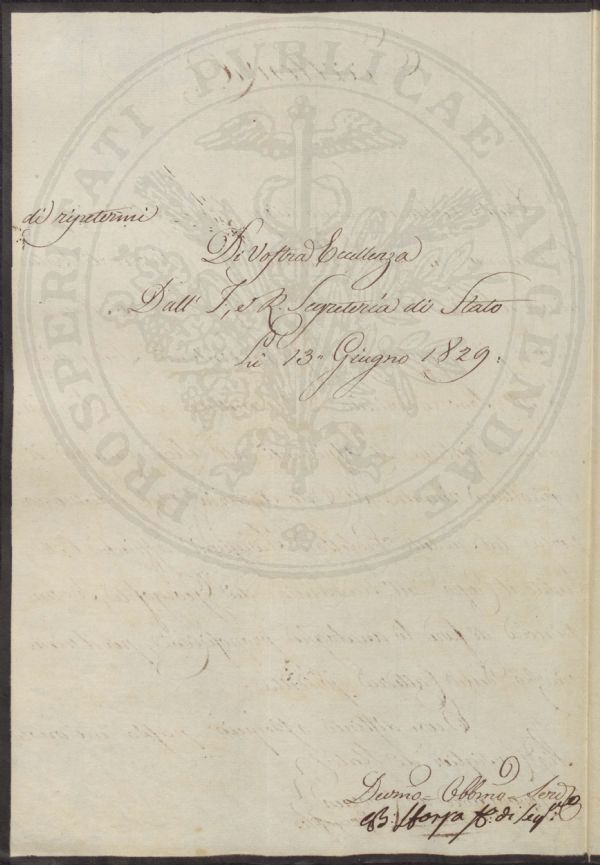 PROSPERITATI PUBLICAE AVGENDAE
di ripetermi
Di Vostra Eccellenza
Dall' I, e R. Segreteria di Stato
Li 13 Giugno 1829:
Devmo Obbmo Serv